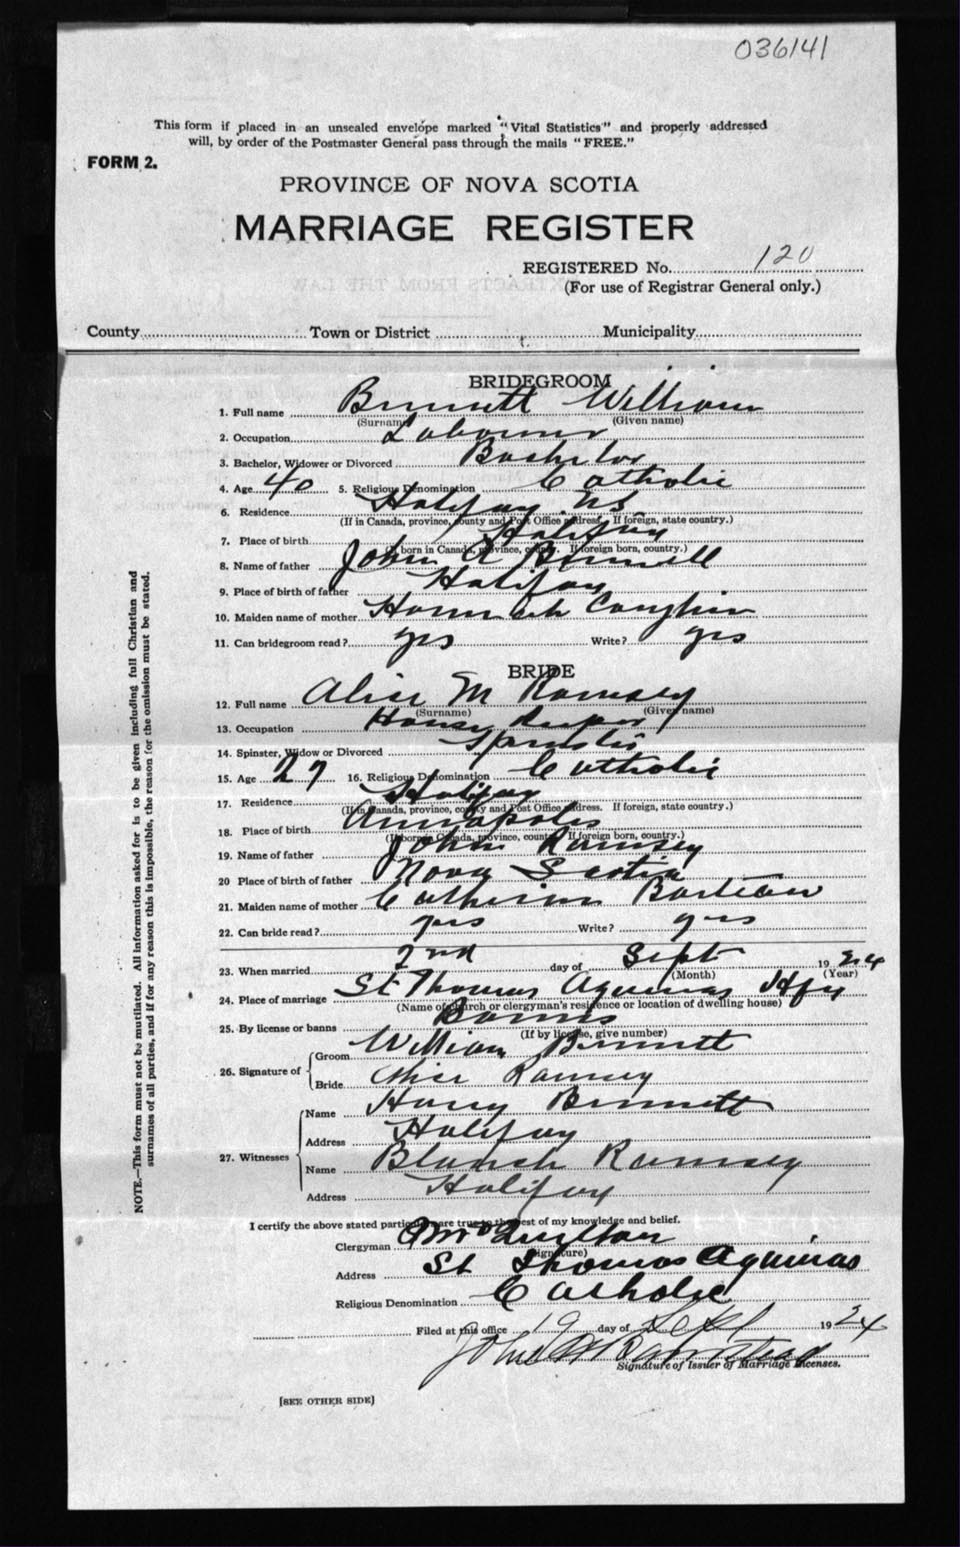 036141
This form if placed in an unsealed envelope marked "Vital Statistics" and properly addressed
will, by order of the Postmaster General pass through the mails "FREE."
FORM 2.
PROVINCE OF NOVA SCOTIA
MARRIAGE REGISTER
REGISTERED No. 120
(For use of Registrar General only.)
County Town or District Municipality
BRIDEGROOM
1. Full name Bennett William
(Surname) (Given name)
2. Occupation Labourer
3. Bachelor, Widower or Divorced Bachelor
4. Age 40 5. Religious Denomination Catholic
6. Residence Halifax NS
(If in Canada, province, county and Post Office address. If foreign, state country.)
7. Place of birth Halifax
(If born in Canada, province, county. If foreign born, country.)
8. Name of father John Bennett
9. Place of birth of father Halifax
10. Maiden name of mother Hannah
11. Can bridegroom read? yes Write? yes
BRIDE
12. Full name Alice M Ramsey
(Surname) (Given name)
13. Occupation House Keeper
14. Spinster, Widow or Divorced Spinster
15. Age 27 16. Religious Denomination Catholic
17. Residence Halifax
(If in Canada, province, county and Post Office address. If foreign, state country.)
18. Place of birth Annapolis
(If born in Canada, province, county. If foreign born, country.)
19. Name of father John Ramsey
20 Place of birth of father Nova Scotia
21. Maiden name of mother Catherine
22. Can bride read? yes Write? yes
23. When married 2nd day of Sept 1924
(Month) (Year)
24. Place of marriage St Thomas Aquinas Hfx
(Name of church or clergyman's residence or location of dwelling house)
25. By license or banns Banns
(If by license, give number)
26. Signature of Groom William Bennett
Bride Alice Ramsey
27. Witnesses Name Harry Bennett
Address Halifax
Name Blanch Ramsey
Address Halifax
I certify the above stated particulars are true to the best of my knowledge and belief.
Clergyman
(Signature)
Address St Thomas Aquinas
Religious Denomination Catholic
Filed at this office 19 day of Sept 1924
John
Signature of Issuer of Marriage Licenses.
[SEE OTHER SIDE]
NOTE.—This form must not be mutilated. All information asked for is to be given including full Christian and
surnames of all parties, and if for any reason this is impossible, the reason for the omission must be stated.